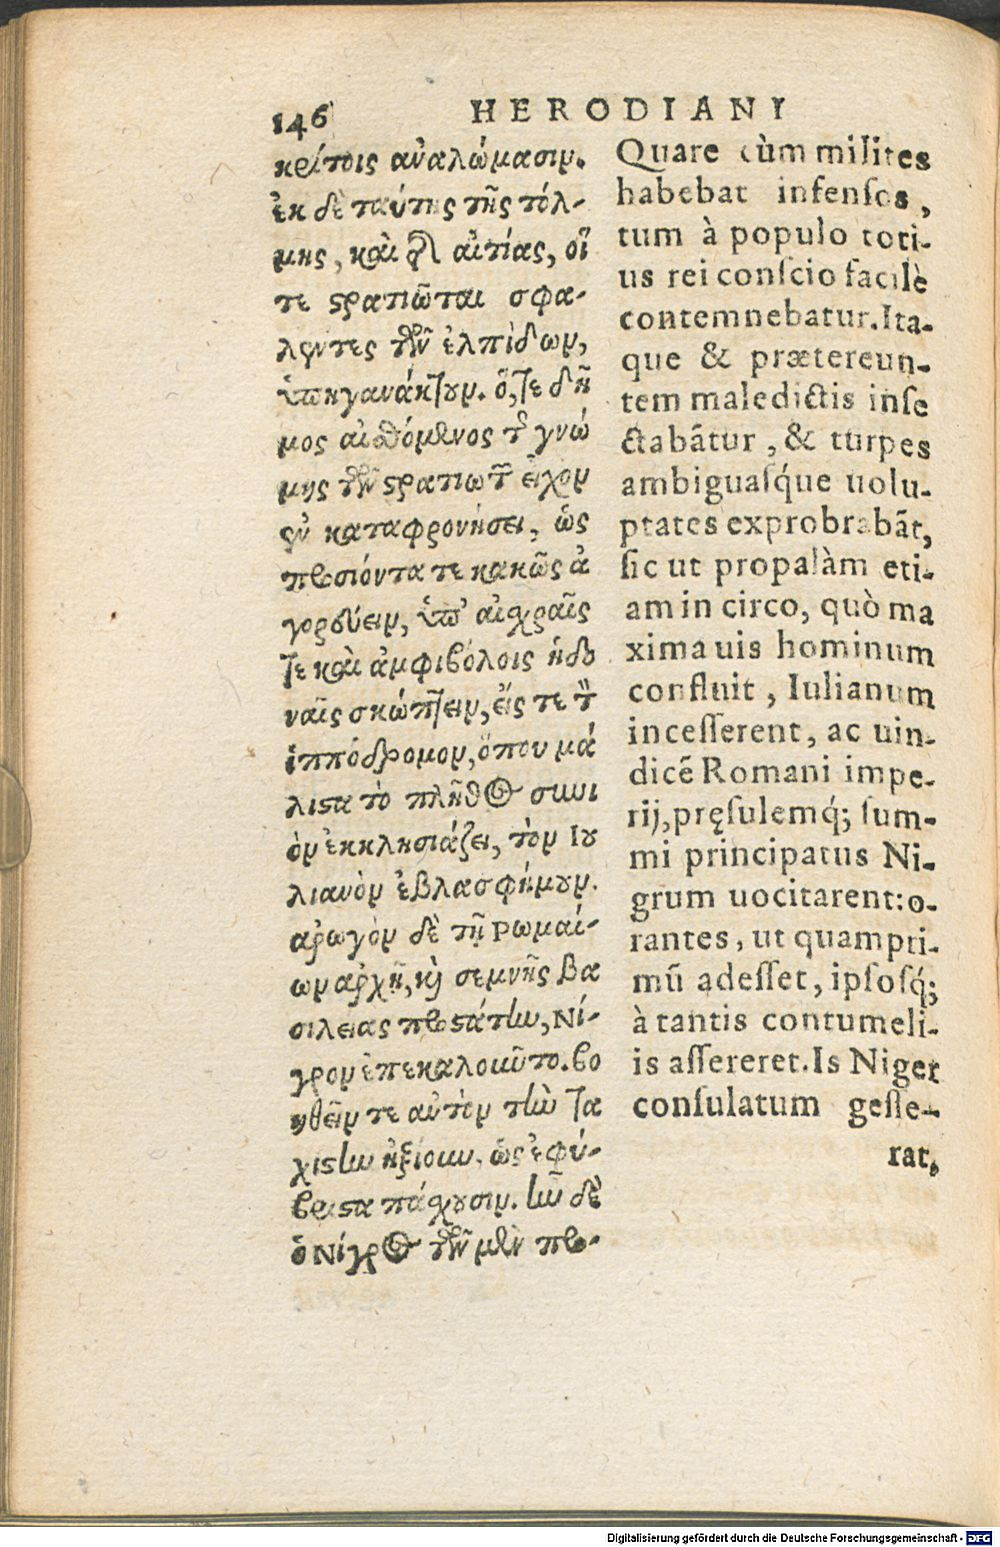 146 HERODIANI
κρίτοις ἀναλώμασιν.
ἐκ δὲ ταύτης τῆς τόλ-
μης, καὶ τῆς αἰτίας, οἵ
τε ϛρατιῶται σφα-
λέντες τῶν ἐλπίδων,
ὑπηγανάκτουν. ὅ, τε δῆ
μος αἰσθόμενος τῆς γνώ
μης τῶν ϛρατιωτῶν εἶχον
ἐν καταφρονήσει, ὡς
προσιόντα τε κακῶς ἀ
γορεύειν, ὑπ' αἰσχραῖς
τε καὶ ἀμφιβόλοις ἡδο
ναῖς σκώπτειν, εἴς τε τὸν
ἱππόδρομον, ὅπου μά
λιϛα τὸ πλῆθος συνι
ὸν ἐκκλησιάζει, τὸν Ιου
λιανὸν ἐβλασφήμουν.
ἀρωγὸν δὲ τῇ Ρωμαί-
ων ἀρχῇ, καὶ σεμνῆς βα
σιλείας προϛάτην, Νί-
γρον ἐπεκαλοῦντο. βο
ηθεῖν τε αὐτὸν τὴν τα
χίϛην ἠξίουν. ὡς ἐφύ-
βριϛα πάσχουσιν. ἦν δὲ
ὁ Νίγρος τῶν μὲν προ-
Quare cùm milites
habebat infensos,
tum à populo toti-
us rei conscio facilè
contemnebatur. Ita-
que & prætereun-
tem maledictis inse
ctabãtur, & turpes
ambiguasq́ue uolu-
ptates exprobrabãt,
sic ut propalàm eti-
am in circo, quò ma
xima uis hominum
confluit, Iulianum
incesserent, ac uin-
dicẽ Romani impe-
rij, pręsulemq́; sum-
mi principatus Ni-
grum uocitarent: o-
rantes, ut quampri-
mũ adesset, ipsosq́;
à tantis contumeli-
is assereret. Is Niger
consulatum gesse-
rat,
Digitalisierung gefördert durch die Deutsche Forschungsgemeinschaft - DFG